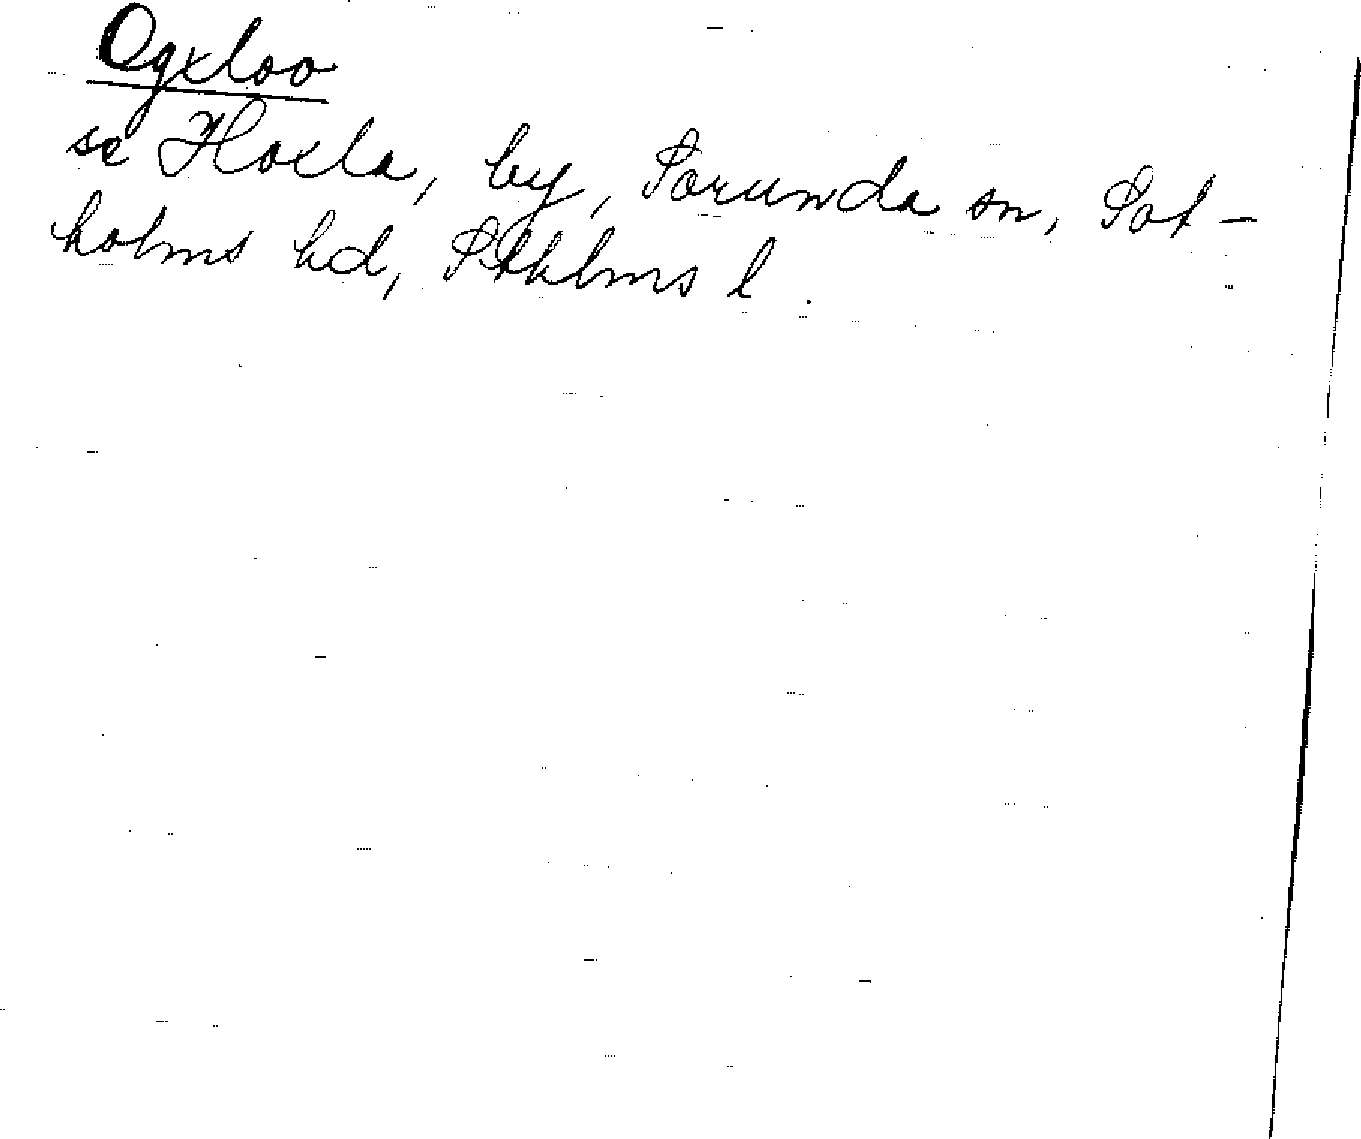 Ogxloo
se Hoxla, by, Sorunda sn, Sot-
holms hd, Sthlms l.